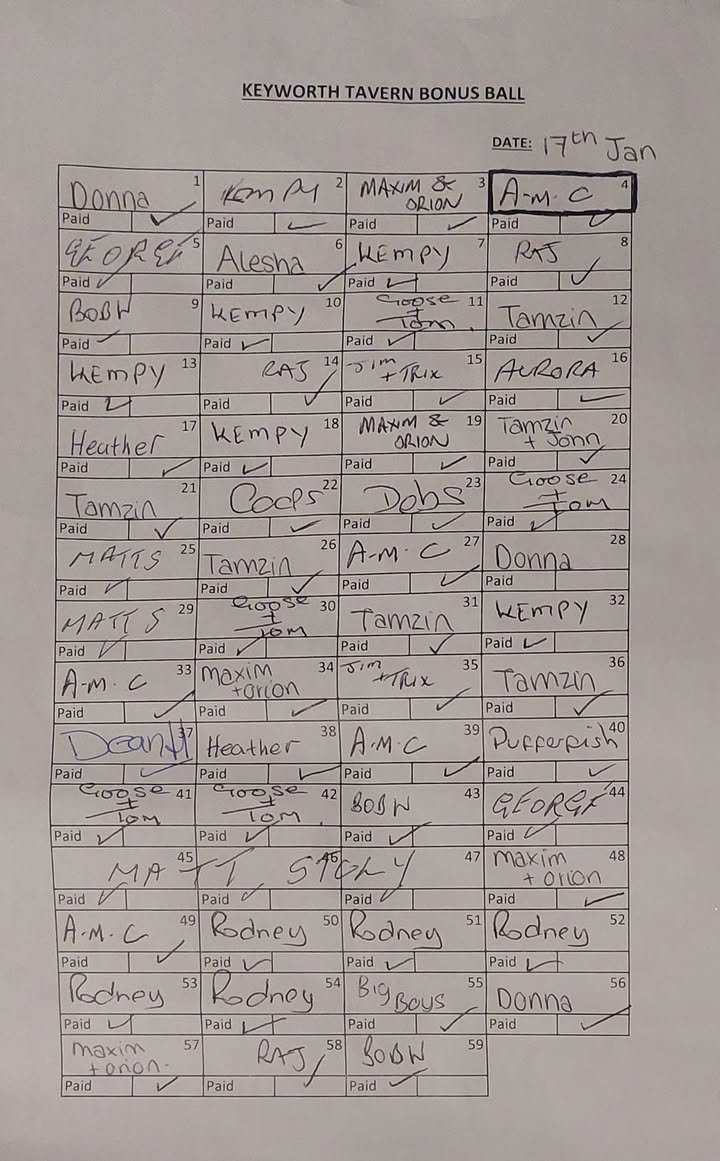 KEYWORTH TAVERN BONUS BALL
DATE: 17th Jan
Donna 1 Kempy 2 MAXIM & ORION 3 A-M-C 4
Paid Paid Paid Paid
GEORGE 5 Alesha 6 KEMPY 7 RAJ 8
Paid Paid Paid Paid
BOBW 9 KEMPY 10 Goose + Tom 11 Tamzin 12
Paid Paid Paid Paid
KEMPY 13 RAJ 14 Jim + TRIX 15 AURORA 16
Paid Paid Paid Paid
Heather 17 KEMPY 18 MAXIM & ORION 19 Tamzin + John 20
Paid Paid Paid Paid
Tamzin 21 Coops 22 Dobs 23 Goose + Tom 24
Paid Paid Paid Paid
MATTS 25 Tamzin 26 A-M-C 27 Donna 28
Paid Paid Paid Paid
MATTS 29 Goose + Tom 30 Tamzin 31 KEMPY 32
Paid Paid Paid Paid
A-M-C 33 maxim + orion 34 Jim + TRIX 35 Tamzin 36
Paid Paid Paid Paid
Dean H 37 Heather 38 A-M-C 39 Pufferfish 40
Paid Paid Paid Paid
Goose + Tom 41 Goose + Tom 42 BOBW 43 GEORGE 44
Paid Paid Paid Paid
MATT 45 46 47 maxim + orion 48
Paid Paid Paid Paid
A-M-C 49 Rodney 50 Rodney 51 Rodney 52
Paid Paid Paid Paid
Rodney 53 Rodney 54 Big Boys 55 Donna 56
Paid Paid Paid Paid
maxim + orion. 57 RAJ 58 BOBW 59
Paid Paid Paid